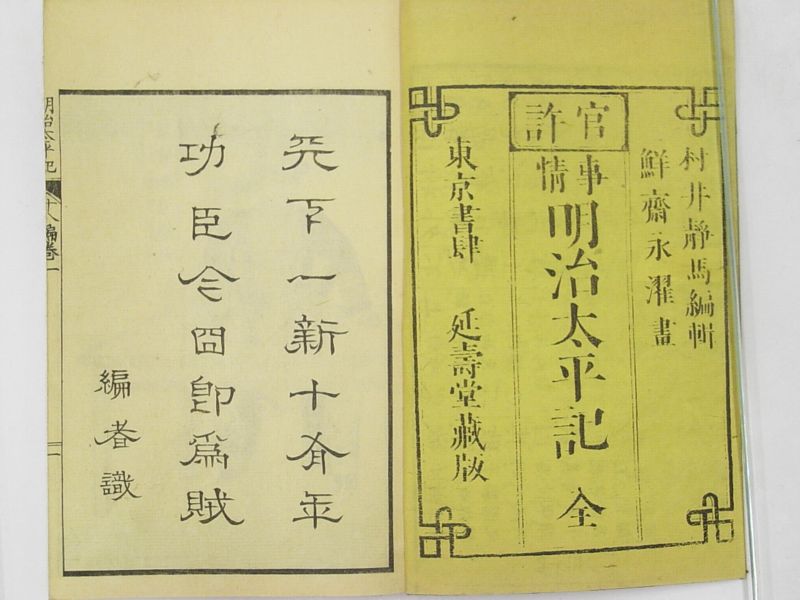 官許
村井靜馬編輯
鮮齋永濯畫
事情
明治太平記 全
東京書肆 延壽堂藏版
天下一新十有年
功臣今囘卽爲賊
編者識
明治太平記 十八編卷一 一